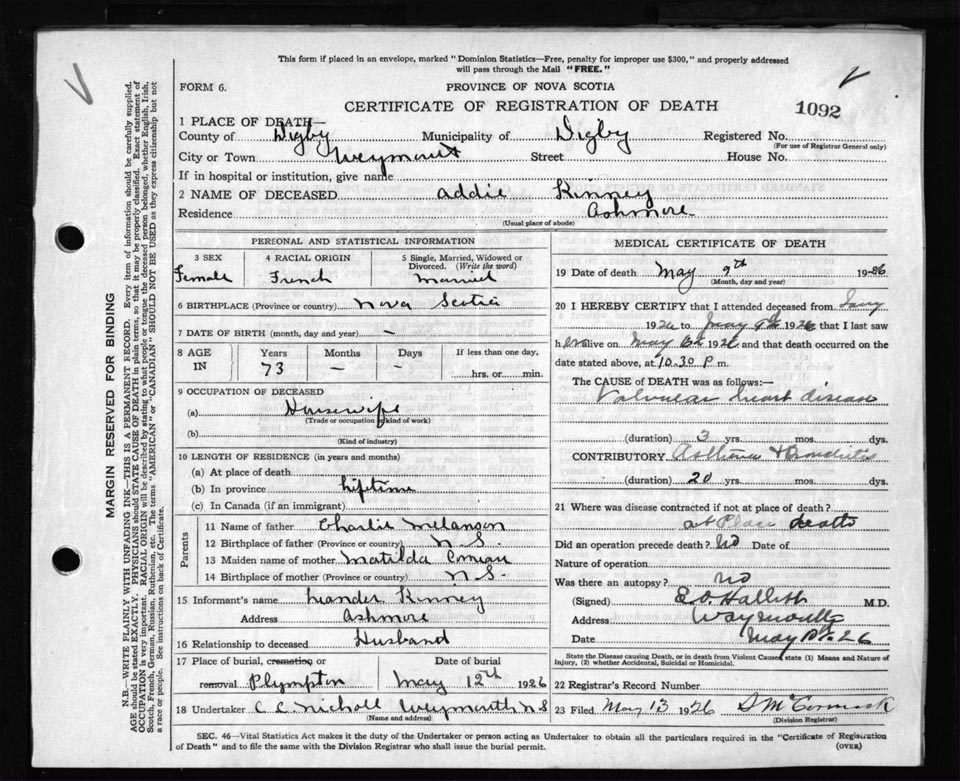 This form if placed in an envelope, marked "Dominion Statistics—Free, penalty for improper use $300," and properly addressed
will pass through the Mail "FREE."
FORM 6.
PROVINCE OF NOVA SCOTIA
CERTIFICATE OF REGISTRATION OF DEATH
1092
1 PLACE OF DEATH—
County of Digby Municipality of Digby Registered No.
(For use of Registrar General only)
City or Town Weymouth Street House No.
If in hospital or institution, give name
2 NAME OF DECEASED Addie Kinney
Residence Ashmore
(Usual place of abode)
PERSONAL AND STATISTICAL INFORMATION
3 SEX 4 RACIAL ORIGIN 5 Single, Married, Widowed or
Divorced. (Write the word)
Female French Married
6 BIRTHPLACE (Province or country) Nova Scotia
7 DATE OF BIRTH (month, day and year) —
8 AGE IN Years Months Days If less than one day,
73 — — hrs. or min.
9 OCCUPATION OF DECEASED
(a) Housewife
(Trade or occupation or kind of work)
(b)
(Kind of industry)
10 LENGTH OF RESIDENCE (in years and months)
(a) At place of death
(b) In province lifetime
(c) In Canada (if an immigrant)
Parents
11 Name of father Charlie Melanson
12 Birthplace of father (Province or country) N.S.
13 Maiden name of mother Matilda Comeau
14 Birthplace of mother (Province or country) N.S.
15 Informant's name Leander Kinney
Address Ashmore
16 Relationship to deceased Husband
17 Place of burial, cremation or Date of burial
removal Plympton May 12th 1926
18 Undertaker C C Nicholl Weymouth N S
(Name and address)
MEDICAL CERTIFICATE OF DEATH
19 Date of death May 9th 1926
(Month, day and year)
20 I HEREBY CERTIFY that I attended deceased from
1926 to May 9th 1926 that I last saw
her alive on May 6th 1926 and that death occurred on the
date stated above, at 10.30 P m.
The CAUSE OF DEATH was as follows:—
Valvular heart disease
(duration) 3 yrs. mos. dys.
CONTRIBUTORY Asthma & Bronchitis
(duration) 20 yrs. mos. dys.
21 Where was disease contracted if not at place of death?
at Place death
Did an operation precede death? No Date of
Nature of operation
Was there an autopsy? no
(Signed) E.O. Hallett M.D.
Address Weymouth
Date May 10th 26
State the Disease causing Death, or in death from Violent Causes, state (1) Means and Nature of
Injury, (2) whether Accidental, Suicidal or Homicidal.
22 Registrar's Record Number
23 Filed May 13 1926 D McCormack
(Division Registrar)
SEC. 46—Vital Statistics Act makes it the duty of the Undertaker or person acting as Undertaker to obtain all the particulars required in the "Certificate of Registration
of Death" and to file the same with the Division Registrar who shall issue the burial permit.
(OVER)
MARGIN RESERVED FOR BINDING
N.B.—WRITE PLAINLY WITH UNFADING INK—THIS IS A PERMANENT RECORD. Every item of information should be carefully supplied.
AGE should be stated EXACTLY. PHYSICIANS should STATE CAUSE OF DEATH in plain terms, so that it may be properly classified. Exact statement of
OCCUPATION is very important. RACIAL ORIGIN will be described by stating to what people or tongue the deceased person belonged, whether English, Irish,
Scotch, French, German, Russian, Ruthenian, etc. The terms "AMERICAN" or "CANADIAN" SHOULD NOT BE USED as they express citizenship but not
a race or people. See instructions on back of Certificate.